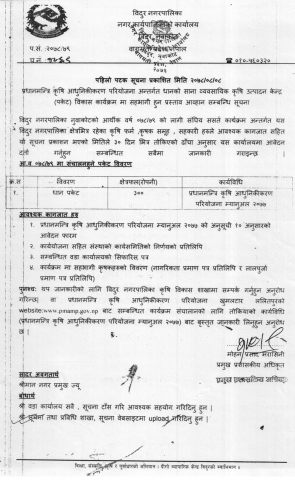 विदुर नगरपालिका
नगर कार्यपालिकाको कार्यालय
विदुर, नुवाकोट
प.सं.:२०७८/७९
पहिलो पटक सूचना प्रकाशित मिति २०७८/०८/०८
प्रधानमन्त्रि कृषि आधुनिकीकरण परियोजना अन्तर्गत धानको साना व्यवसायिक कृषि उत्पादन केन्द्र
(पकेट) विकास कार्यक्रम मा सहभागी हुन प्रस्ताव आव्हान सम्बन्धि सूचना
विदुर नगरपालिका नुवाकोटको आर्थीक वर्ष २०७८/७९ को लागी संघिय ससर्त कार्यक्रम अन्तरगत यस
विदुर नगरपालिका क्षेत्रभित्र रहेका कृषि फर्म ,कृषक समुह , सहकारी हरुले आवश्यक कागजात सहित
यो सूचना प्रकाशन भएको मितिले ३० दिन भित्र तोकिएको ढाँचा अनुसार यस कार्यालयमा आवेदन
दर्ता गर्नुहुन सम्बन्धित सबैमा जानकारी गराइन्छ ।
आ.व ०७८/७९ मा संचालनहुने पकेट विवरण
क्र.स विवरण क्षेत्रफल(रोपनी) कार्यविधि
१ धान पकेट ३०० प्रधानमन्त्रि कृषि आधुनिकीकरण
परियोजना म्यानुअल २०७७
आवश्यक कागजात हरु
१. प्रधानमन्त्रि कृषि आधुनिकीकरण परियोजना म्यानुअल २०७७ को अनुसूची १० अनुसारको
आवेदन फारम
२. कार्ययोजना सहित संस्थाको कार्यसमितिको निर्णयको प्रतिलिपि
३. सम्बन्धित वडा कार्यालयको सिफारिस पत्र
४. कार्यक्रम मा सहभागी कृषकहरुको विवरण (नागरिकता प्रमाण पत्र प्रतिलिपि र लालपुर्जा
प्रमाण पत्र प्रतिलिपि)
पुनश्चः थप जानकारीको लागि बिदुर नगरपालिका कृषि विकास शाखामा सम्पर्क गर्नुहुन अनुरोध
गरिन्छ। वा प्रधानमन्त्रि कृषि आधुनिकीकरण परियोजना खुमलटार ललितपुरको
website:www.pmamp.gov.np बाट सम्बन्धित कार्यक्रम संचालनको लागि तोकियेको कार्यविधि
(प्रधानमन्त्रि कृषि आधुनिकीकरण परियोजना म्यानुअल २०७७) बाट बृस्तृत जानकारी लिनुहुन अनुरोध
छ ।
प्रमुख प्रशासकिय अधिकृत
सादर अवगतार्थ
श्रीमान नगर प्रमुख ज्यू,
बोधार्थ
श्री वडा कार्यालय सबै , सूचना टाँस गरि आवश्यक सहयोग गरिदिनु हुन ।
श्री सूचना तथा प्रबिधि शाखा, सूचना वेबसाइटमा upload गरिदिनु हुन ।